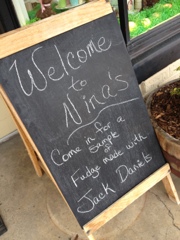 Welcome
to
Nina's
Come in for a
sample of
Fudge made with
Jack Daniels